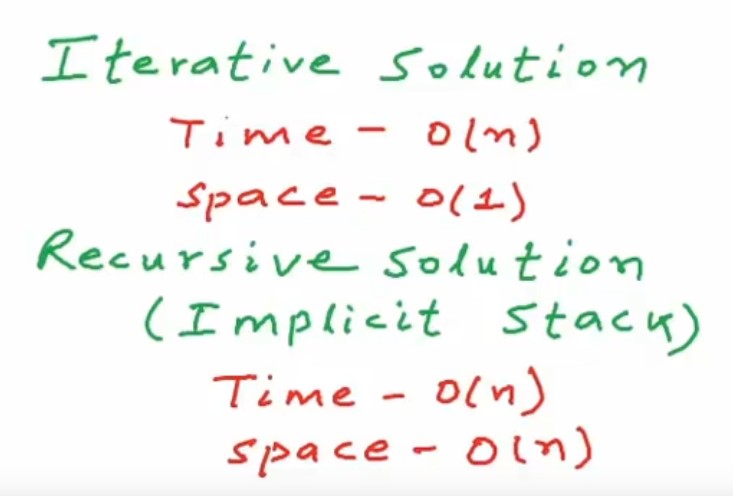 Iterative Solution
Time - O(n)
Space - O(1)
Recursive Solution
(Implicit Stack)
Time - O(n)
Space - O(n)